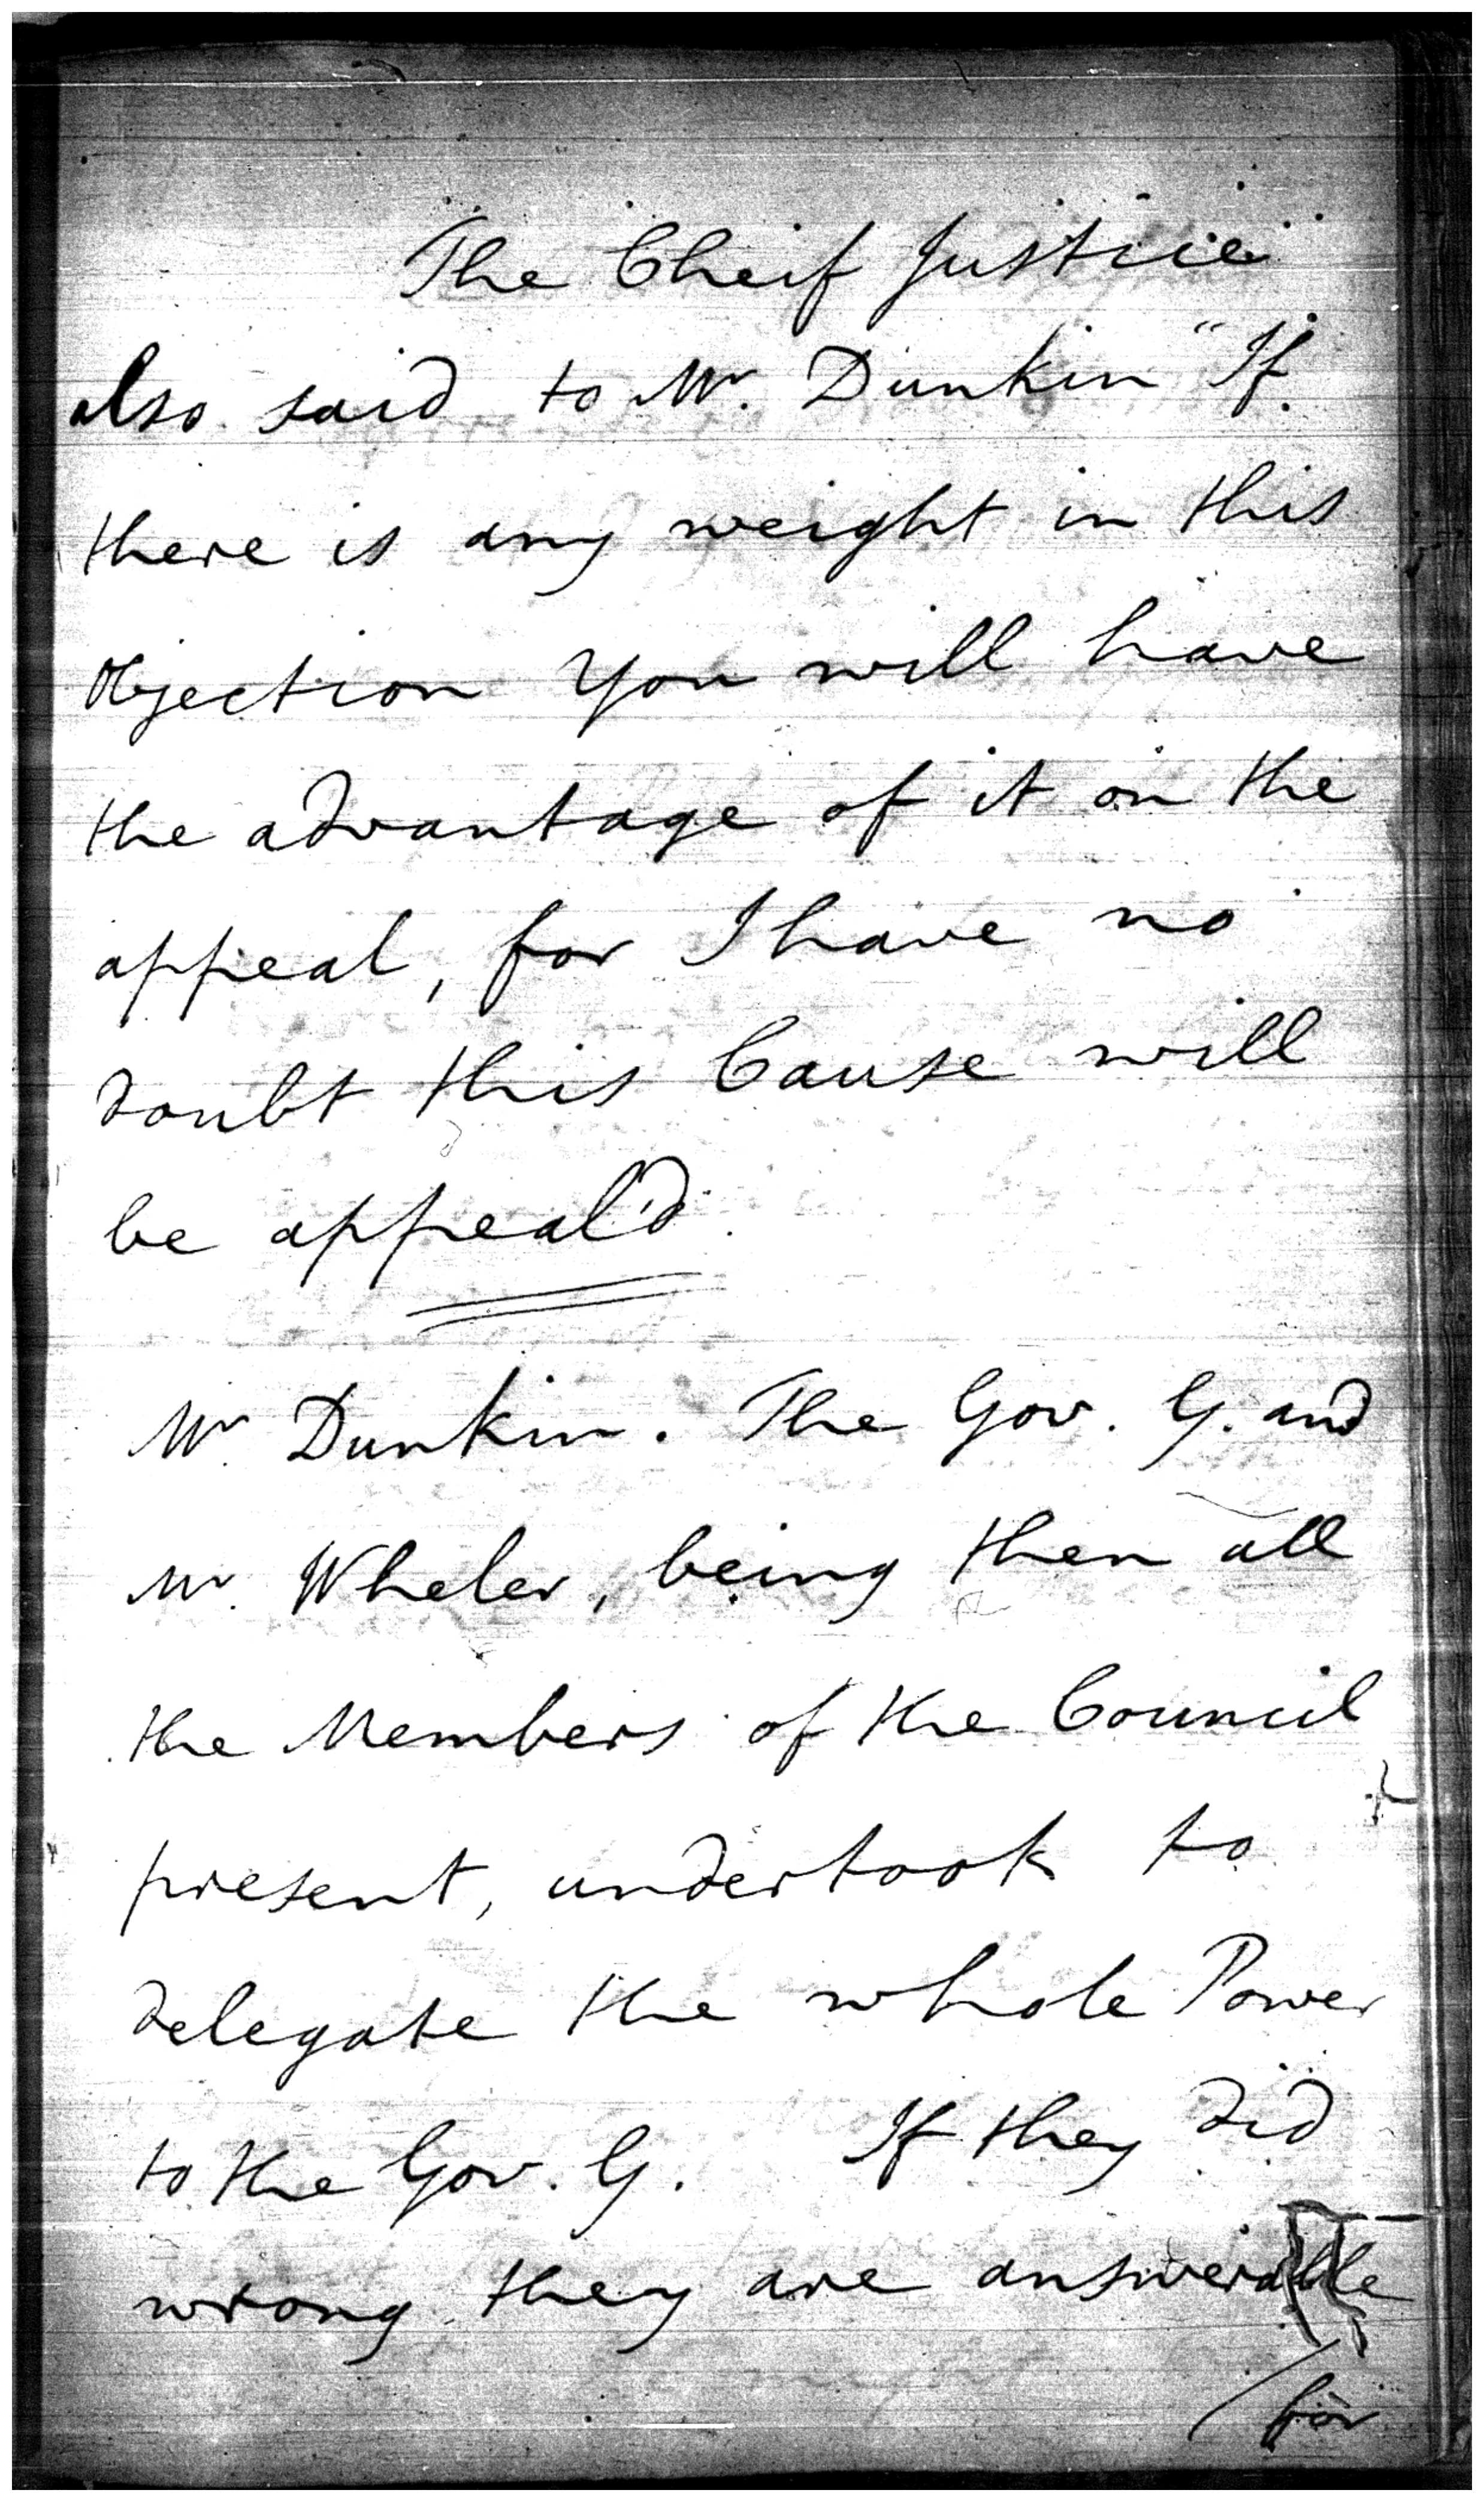 The Cheif Justice
also said to Mr. Dunkin "If
there is any weight in this
objection you will have
the advantage of it on the
appeal, for I have no
doubt this Cause will
be appeal'd.
Mr. Dunkin. The Gov. G. and
Mr. Wheler, being then all
the Members of the Council
present, undertook to
delegate the whole Power
to the Gov. G. If they did
wrong they are answerable
for